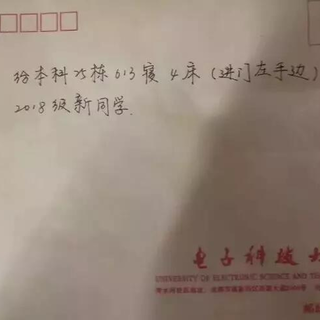 给本科25栋613寝4床(进门左手边)
2018级新同学.
电子科技大
UNIVERSITY OF ELECTRONIC SCIENCE AND TE